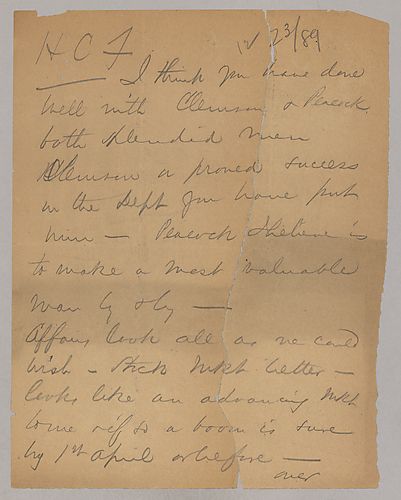 H C F 12/23/89
I think you have done
well with Clemson & Peacock.
both splendid men
Clemson a proved success
in the Dept you have put
him — Peacock I believe is
to make a most valuable
man by & by —
Affairs look all as we could
wish — Stock Mkt better —
looks like an advancing Mkt
if so a boom is sure
by 1st April or before —
over